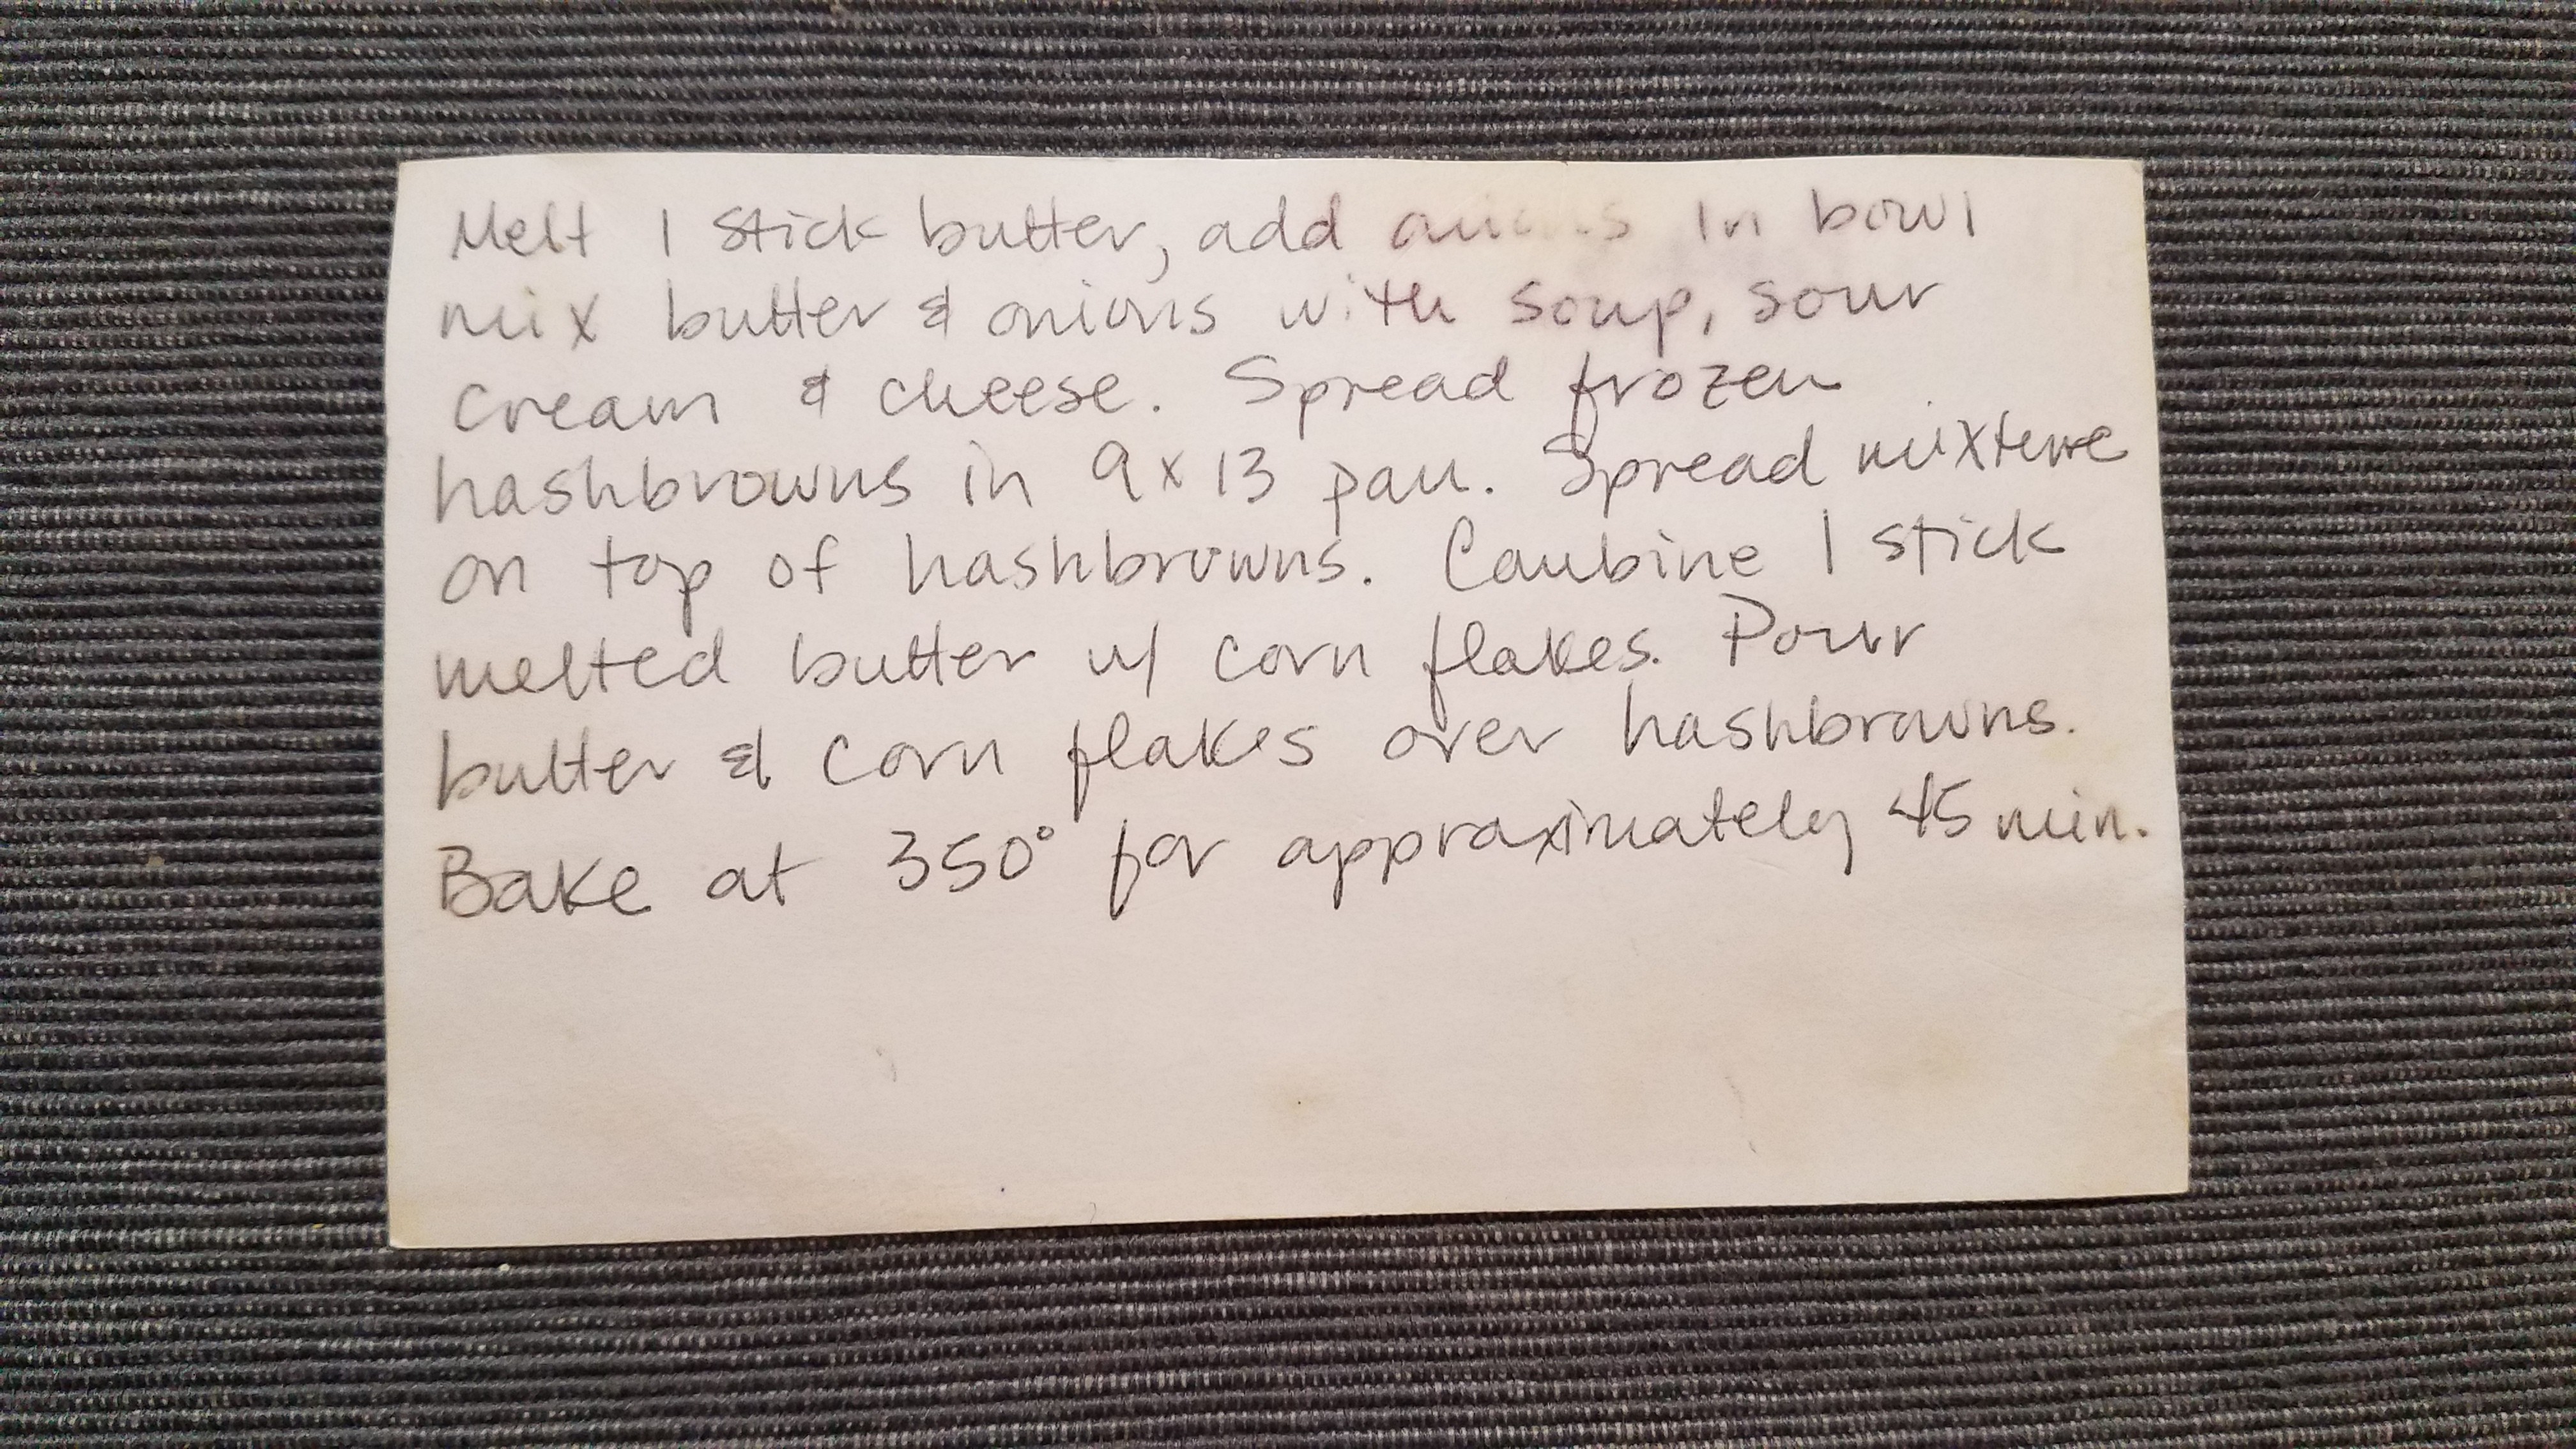 Melt 1 stick butter, add onions In bowl
mix butter & onions with soup, sour
cream & cheese. Spread frozen
hashbrowns in 9x13 pan. Spread mixture
on top of hashbrowns. Combine 1 stick
melted butter w/ corn flakes. Pour
butter & corn flakes over hashbrowns.
Bake at 350° for approximately 45 min.